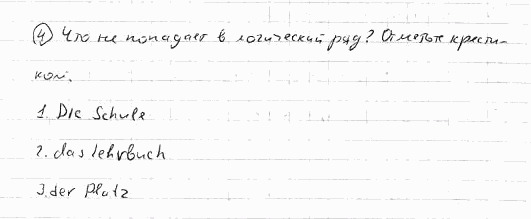 ④ Что не попадает в логический ряд? Отметьте крести-
ком.
1. Die Schule
2. das Lehrbuch
3. der Platz